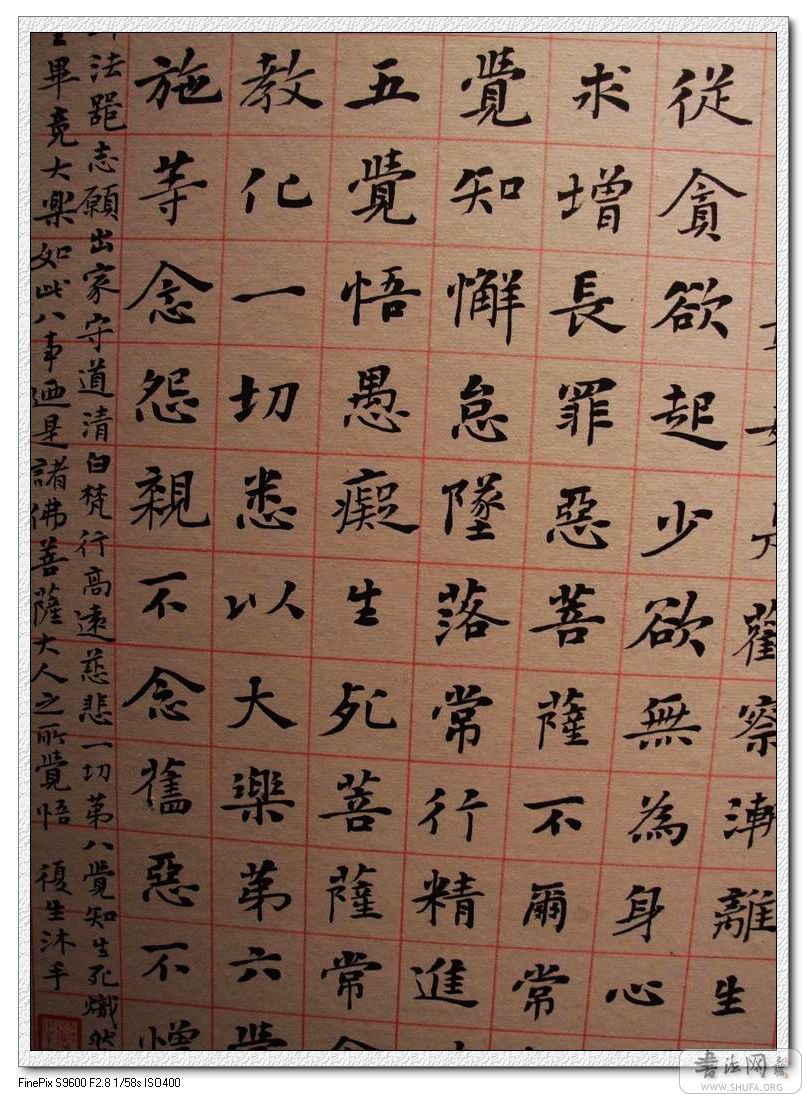 觀察漸離生
從貪欲起少欲無為身心
求增長罪惡菩薩不爾常
覺知懈怠墜落常行精進
五覺悟愚癡生死菩薩常
教化一切悉以大樂第六覺
施等念怨親不念舊惡不憎
法志願出家守道清白梵行高遠慈悲一切第八覺知生死熾然
生畢竟大樂如此八事迺是諸佛菩薩大人之所覺悟 復生沐手
书法网
WWW.SHUFA.ORG
FinePix S9600 F2.8 1/58s ISO400